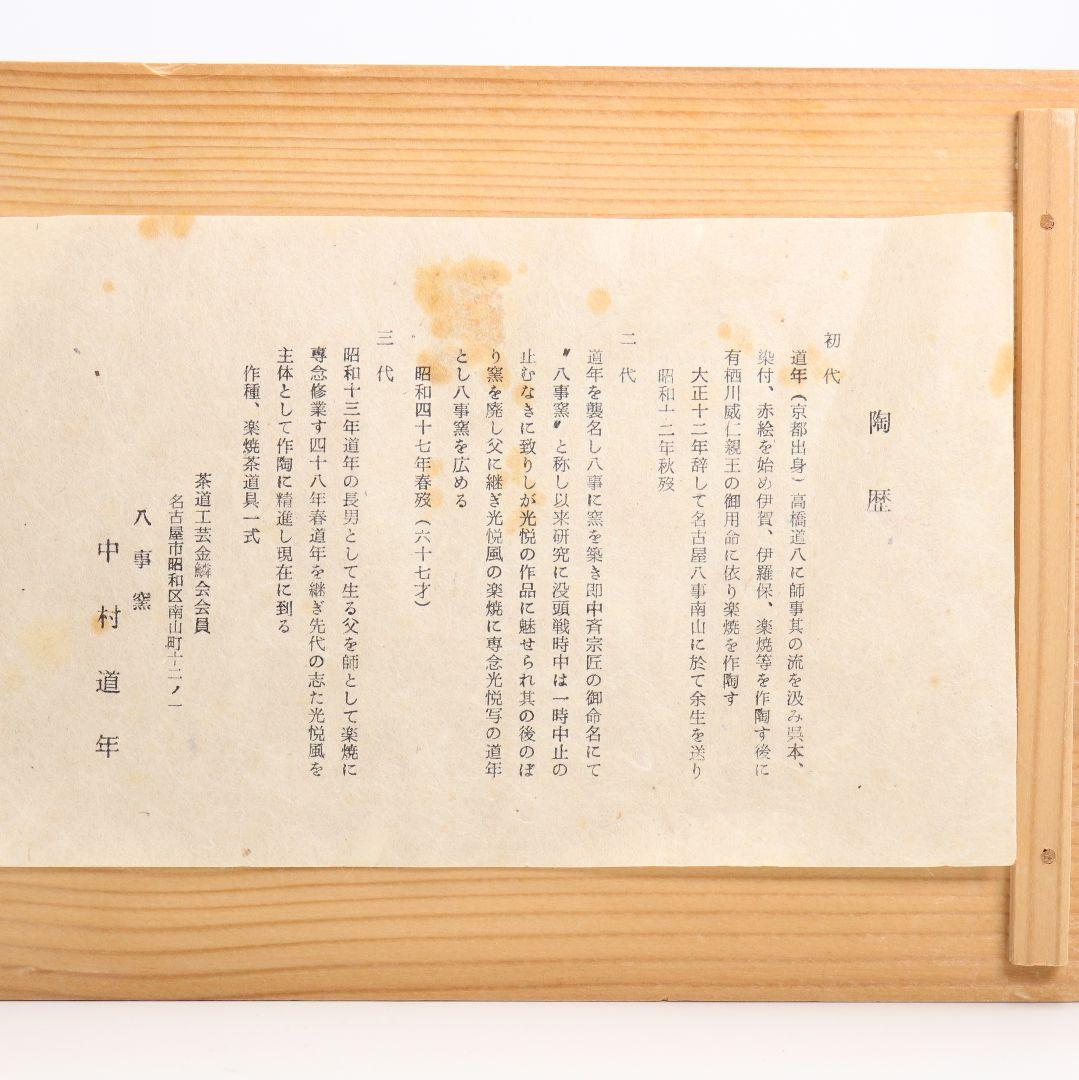 陶歴
初代
道年(京都出身)高橋道八に師事其の流を汲み呉本、
染付、赤絵を始め伊賀、伊羅保、楽焼等を作陶す後に
有栖川威仁親王の御用命に依り楽焼を作陶す
大正十二年辞して名古屋八事南山に於て余生を送り
昭和十二年秋歿
二代
道年を襲名し八事に窯を築き即中斉宗匠の御命名にて
〝八事窯〟と称し以来研究に没頭戦時中は一時中止の
止むなきに致りしが光悦の作品に魅せられ其の後のぼ
り窯を廃し父に継ぎ光悦風の楽焼に専念光悦写の道年
とし八事窯を広める
昭和四十七年春歿(六十七才)
三代
昭和十三年道年の長男として生る父を師として楽焼に
専念修業す四十八年春道年を継ぎ先代の志た光悦風を
主体として作陶に精進し現在に到る
作種、楽焼茶道具一式
茶道工芸金鱗会会員
名古屋市昭和区南山町十二ノ一
八事窯
中村道年